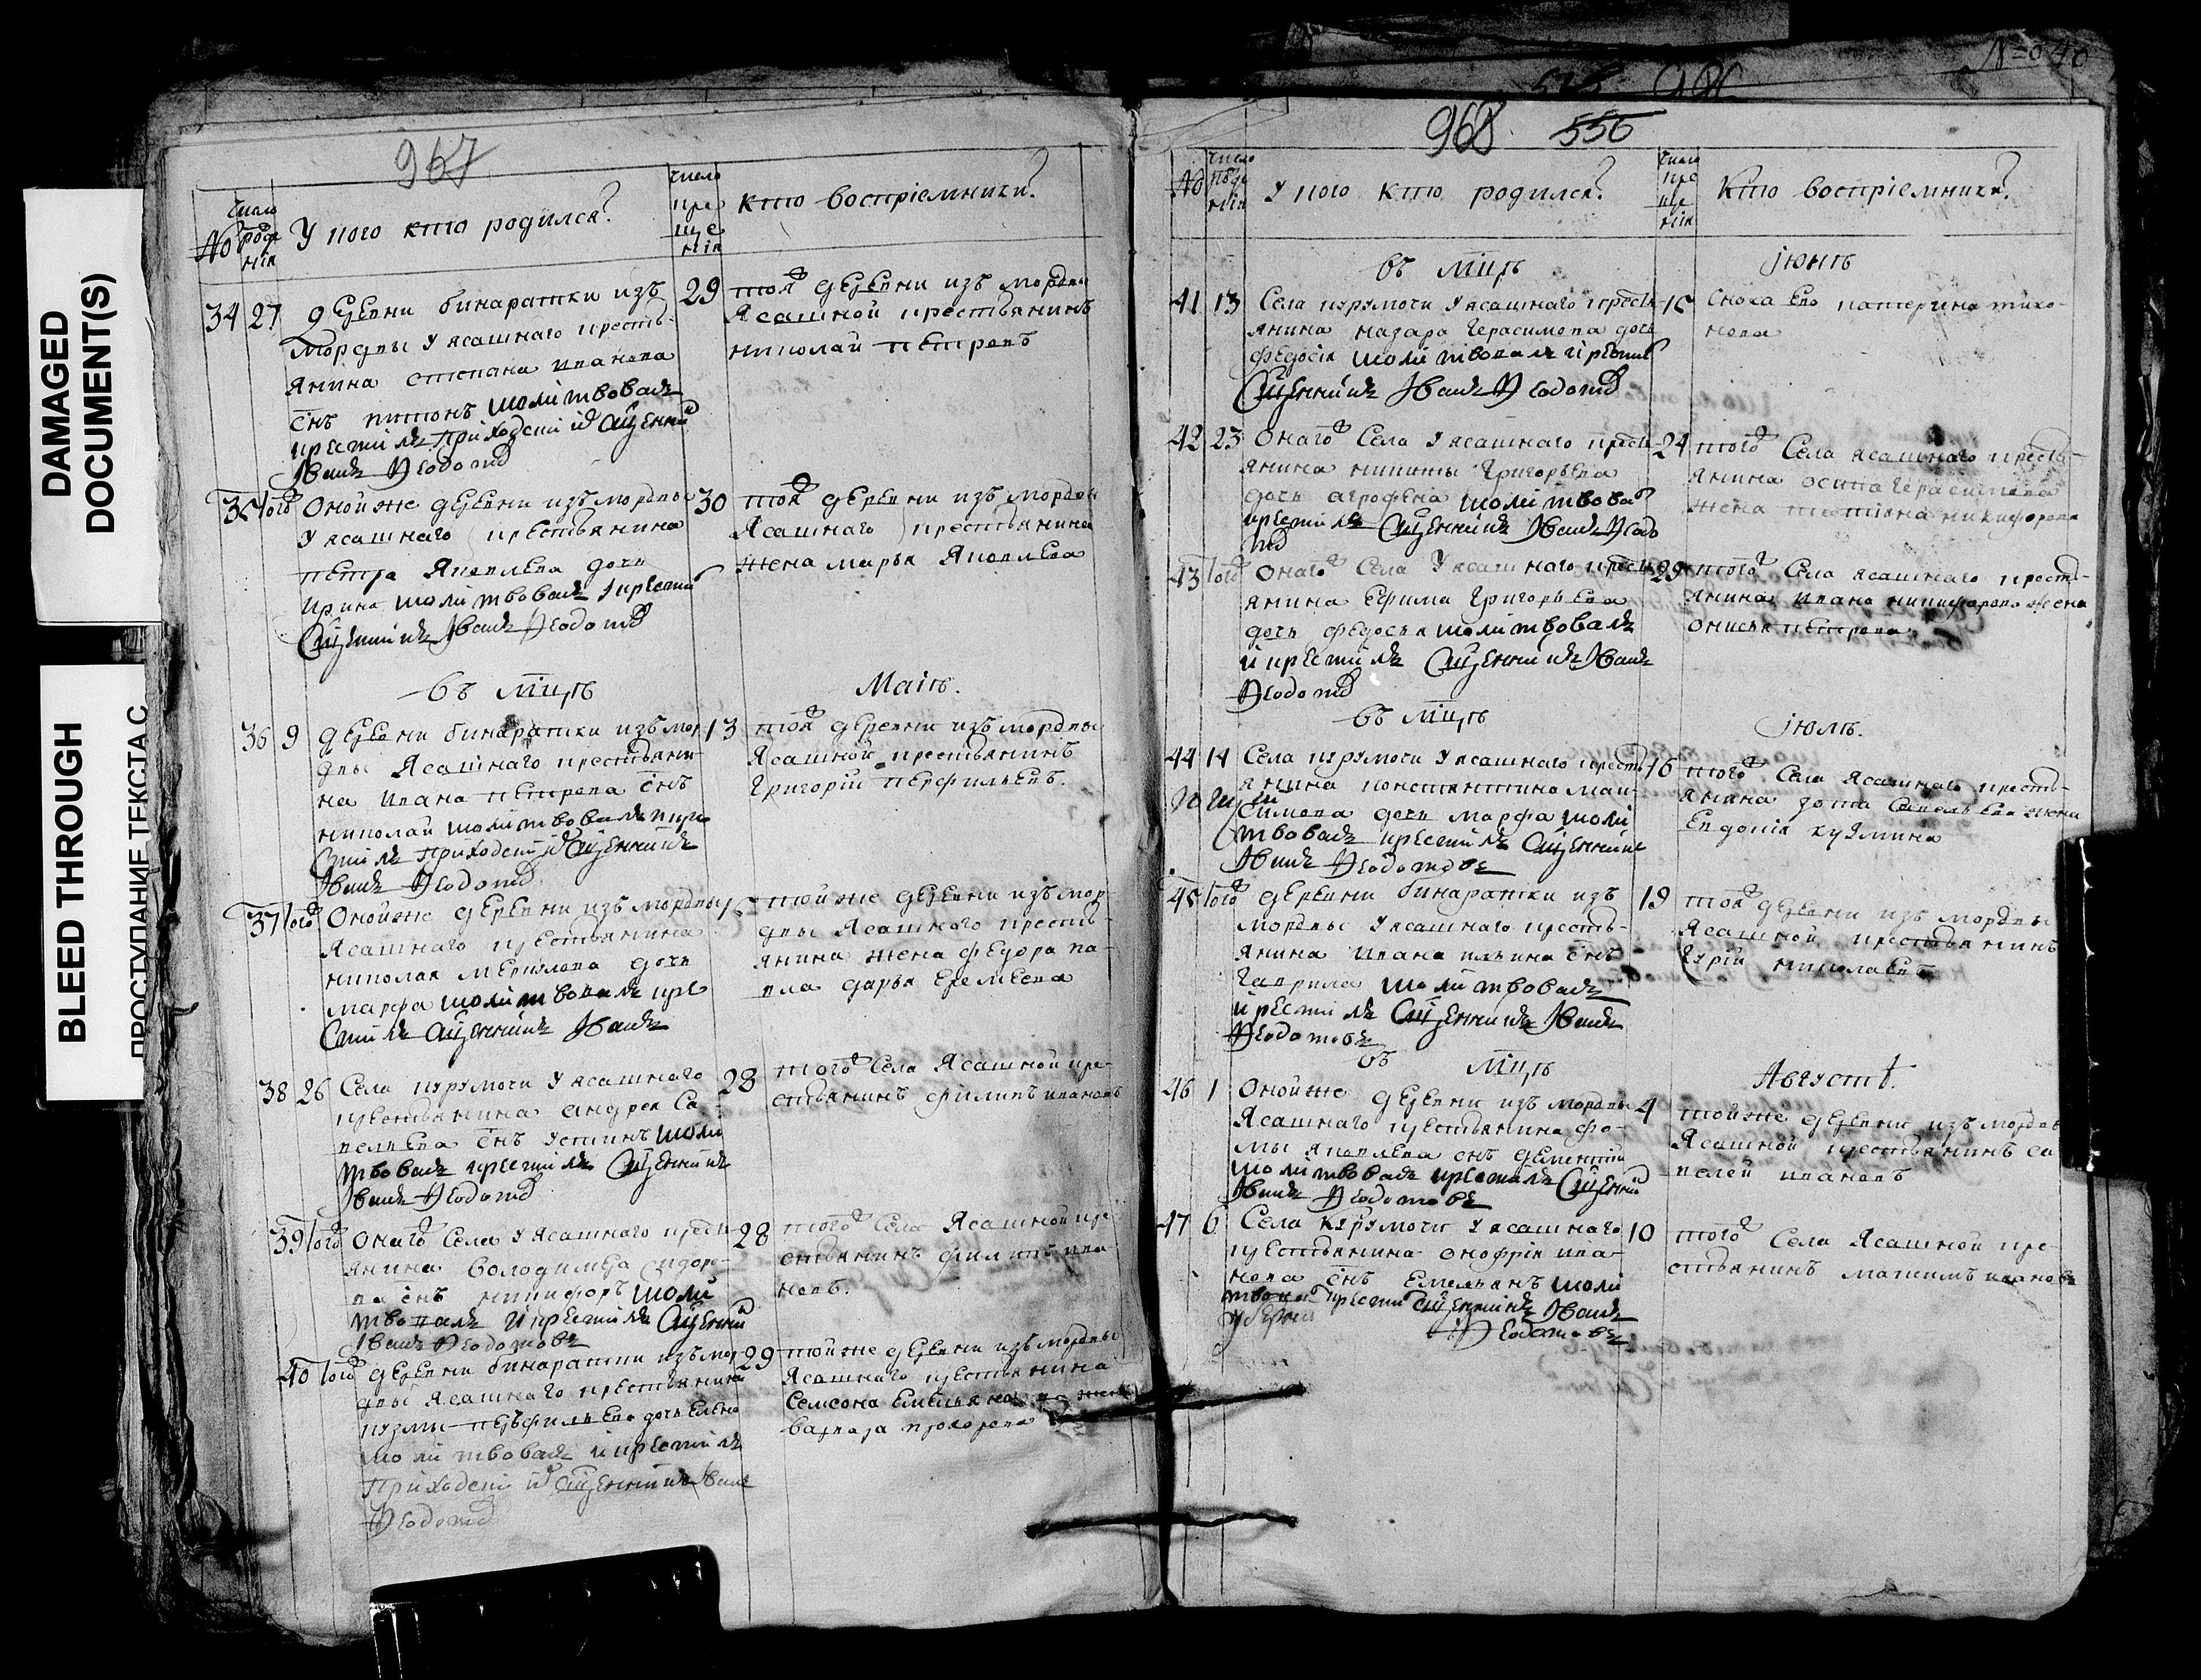 DAMAGED
DOCUMENT(S)
BLEED THROUGH
ПРОСТУПАНИЕ ТЕКСТА С
967
№
число
рожде
нія
У кого кто родился?
число
кре
ще
нія
кто воспріемники?
34 27
деревни бинаратки изъ
мордвы у ясашнаго кресть-
янина степана иванова
снъ титонъ молитвовалъ
крестилъ приходскій свщенни
Иванъ Ѳедото
29
тоя деревни изъ мордвы
ясашной крестьянинъ
николай петровъ
35 того
Онойже деревни изъ мордвы
у ясашнаго крестьянина
петра яковлева дочь
ирина молитвовалъ крести
Свщенникъ Иванъ Ѳедотов
30
тоя деревни изъ мордвы
ясашнаго крестьянина
жена марья яковлева
въ мцѣ Маіѣ.
36 9
деревни бинаратки изъ мор
двы ясашнаго крестьяни-
на ивана петрова снъ
николай молитвовалъ кре
стилъ приходскій Свщенникъ
Иванъ Ѳедотов
13
тоя деревни изъ мордвы
ясашной крестьянинъ
григорій перфильевъ.
37 того
Онойже деревни изъ мордвы
ясашнаго крестьянина
николая меркулова дочь
марфа молитвовалъ кре
стилъ Свщенникъ Иванъ
15
тойже деревни изъ мор-
двы ясашнаго кресть-
янина жена федора па-
вла дарья еремеева
38 26
Села курумочи у ясашнаго
крестьянина андрея са-
велиева снъ устинъ моли
твовалъ крестилъ Свщенникъ
Иванъ Ѳедотов
28
того Села ясашной кре-
стьянинъ филипъ ивановъ
39 того
Онаго Села у ясашнаго кресть
янина володимера сидоро-
ва снъ никифоръ моли
твовалъ и крестилъ Свщенни
Иванъ Ѳедотовъ
28
того Села ясашной кре-
стьянинъ филипъ ива-
новъ.
40 того
деревни бинаратки изъ мор-
двы ясашнаго крестьянина
кузмы перфильева дочь елена
молитвовалъ и крестилъ
приходскій Свщенникъ Иванъ
Ѳедотов
29
тойже деревни изъ мордвы
ясашнаго крестьянина
Семсона Емельянова жена
варвара прохорова
№ 040
968 556
№
число
рожде
нія
У кого кто родился?
число
кре
ще
нія
Кто воспріемники?
въ мцѣ іюнѣ
41 13
Села курумочи у ясашнаго кресть
янина назара герасимова дочь
федосія молитвовалъ и крестил
Свщенникъ Иванъ Ѳедотов
15
сноха ево катерина тихо-
нова
42 23
Онаго Села у ясашнаго кресть
янина никиты григорьева
дочь агрофена молитвова
крестилъ Свщенникъ Иванъ Ѳедо
тов
24
того Села ясашнаго кресть-
янина осипа герасимова
жена татіяна никифорова
43 того
Онаго Села у ясашнаго кресть
янина ефима григорьева
дочь федосья молитвовалъ
и крестилъ Свщенникъ Иванъ
Ѳедотов
29
того Села ясашнаго кресть-
янина ивана никифорова жена
онисья петрова
въ мцѣ іюлѣ.
44 14
Села курумочи у ясашнаго кресть
янина константина мак-
симова дочь марфа моли
твовалъ крестилъ Свщенник
Иванъ Ѳедотовъ
16
того Села ясашнаго кресть-
янина зота савельева жена
Евдокія кузмина
45 того
деревни бинаратки изъ
мордвы у ясашнаго кресть-
янина ивана ильина снъ
гаврила молитвовалъ
крестилъ Свщенникъ Иванъ
Ѳедотовъ
19
тоя деревни изъ мордвы
ясашной крестьянинъ
гурій николаевъ
въ мцѣ Августѣ.
46 1
Онойже деревни изъ мордвы
ясашнаго крестьянина фо-
мы яковлева снъ дементій
молитвовалъ крестилъ Свщенни
Иванъ Ѳедотовъ
4
тойже деревни изъ мордвы
ясашной крестьянинъ са
велей ивановъ
47 6
Села курумочи у ясашнаго
крестьянина онофрія ива-
нова снъ Емельянъ моли
твовал крестил Свщенникъ Иванъ
Ѳедотовъ
10
того Села ясашной кре-
стьянинъ максимъ ивановъ